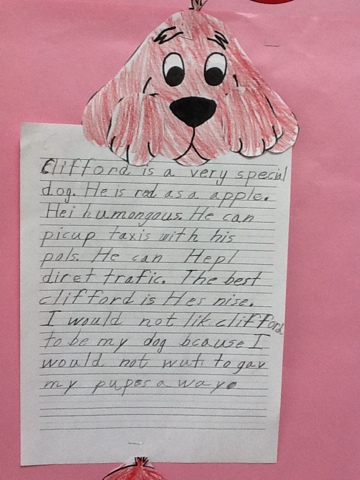 Clifford is a very special
dog. He is red as a apple.
Hei humongous. He can
picup taxis with his
pals. He can Hepl
diret trafic. The best
clifford is Hes nise.
I would not lik clifford
to be my dog bcause I
would not wut to gav
my pupes a waye